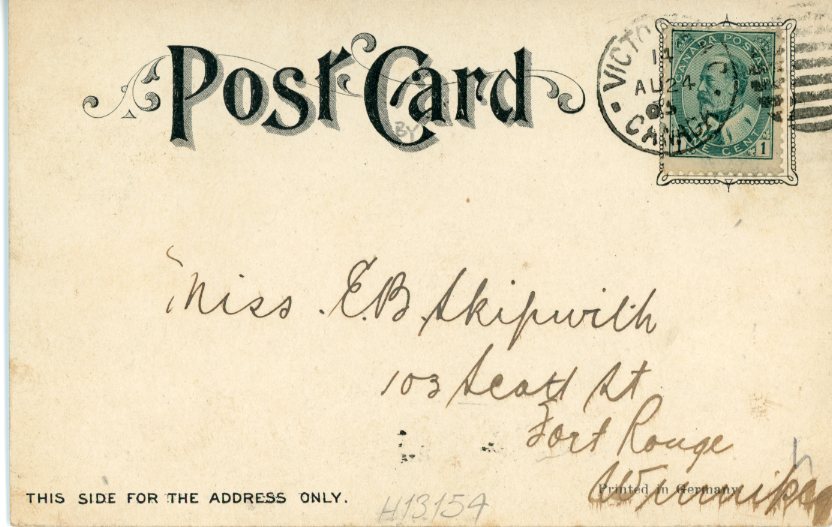 Post Card
BY
VICTO
14
AU 24
CANADA
CANADA POSTAGE
ONE CENT 1
Miss. E.B. Skipwith
103 Scott St
Fort Rouge
Winnipeg
Printed in Germany.
THIS SIDE FOR THE ADDRESS ONLY.
H13154